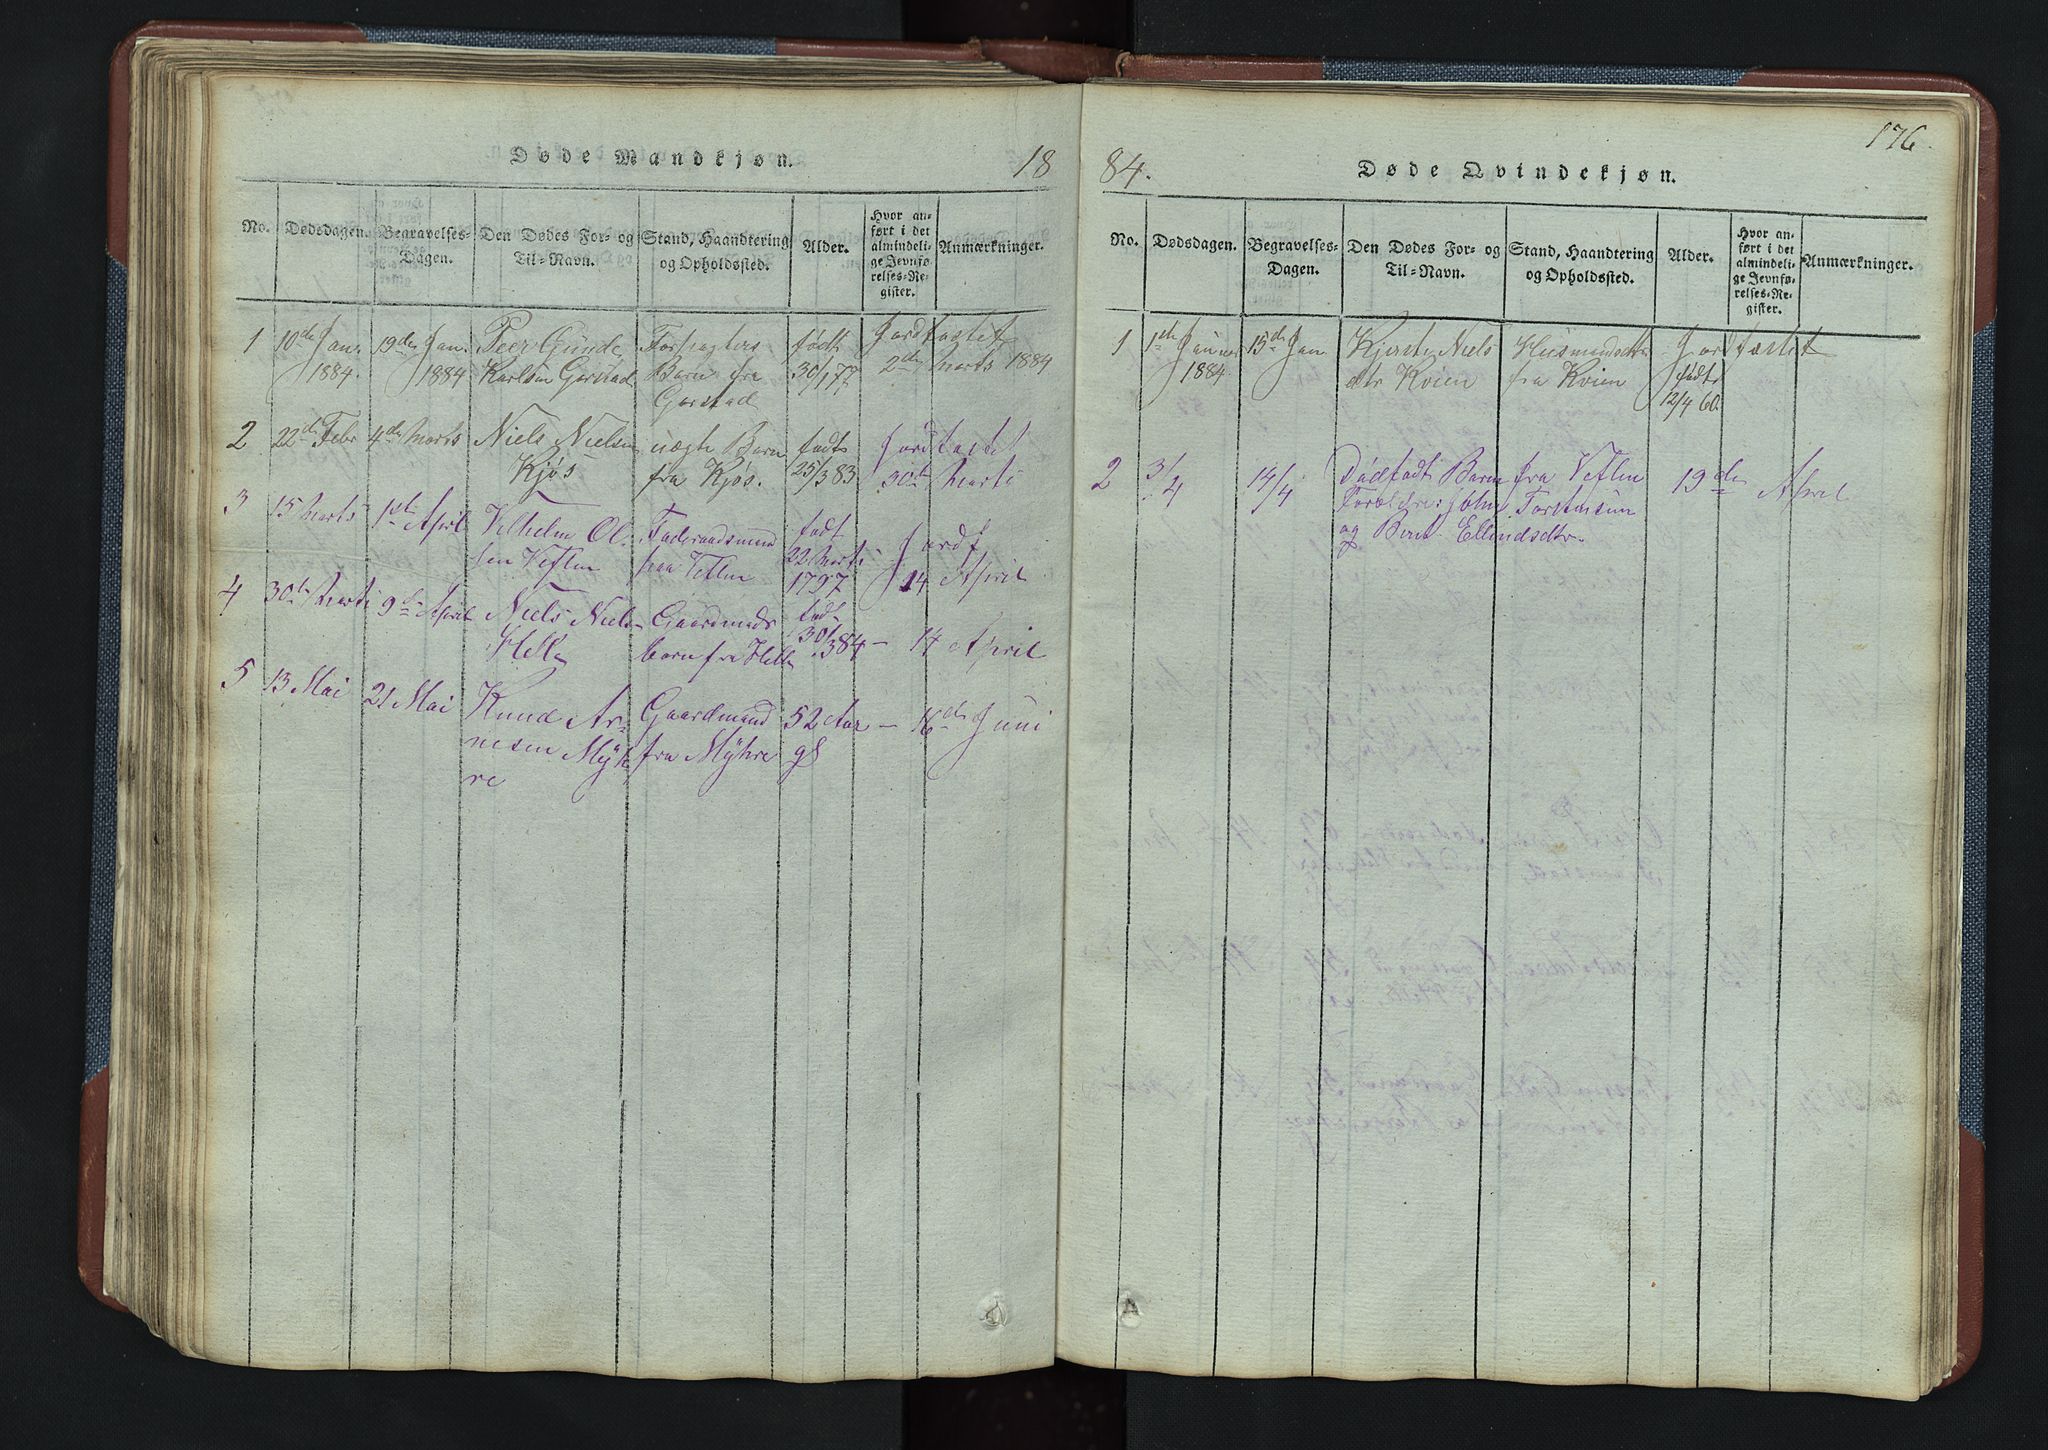 Døde Mandkjøn.
18
No.
Dødedagen.
Begravelses-
Dagen.
Den Dødes For- og
Til-Navn.
Stand, Haandtering
og Opholdssted.
Alder.
Hvor an-
ført i det
almindeli-
ge Jevnfø-
relses-Re-
gister.
Anmærkninger.
1
10de Jan.
1884.
19de Jan.
1884
Peer Gunde
Karlsen Garstad
Forpagters
Barn fra
Garstad
født
30/1 77
Jordfæstet
2de Marts 1884
2
22de Febr
4de Marts
Niels Nielsen
Kjøs
uægte Barn
fra Kjøs.
født
25/3 83
Jordfæstet
30te Marts
3
15 Marts
1ste April
Vilhelm Ol-
sen Veflen
Føderaadsmand
fra Veflen
født
22 Marts
1797
Jordf
14 April
4
30te Marts
9de April
Niels Niels-
Helle
Gaardmands
barn fra Helle
født
30/3 84
— 14 April
5
13 Mai
21 Mai
Knud Ar-
nesen Myh
re
Gaardmand
fra Myhre
52 Aar
gl
— 16de Juni
176
84.
Døde Qvindekjøn.
No.
Dødsdagen.
Begravelses-
Dagen.
Den Dødes For- og
Til-Navn.
Stand, Haandtering
og Opholdssted.
Alder.
Hvor an-
ført i det
almindeli-
ge Jevnfø-
relses-Re-
gister.
Anmærkninger.
1
1ste Januar
1884.
15de Jan
Kjersti Niels
dtr Kvien
Husmandsdtr
fra Kvien
Jordfæstet
født
12/4 60.
2
3/4
14/4
Dødfødt Barn fra Veflen
Forældre: John Torstensen
og Berit Ellindsdtr.
19de April